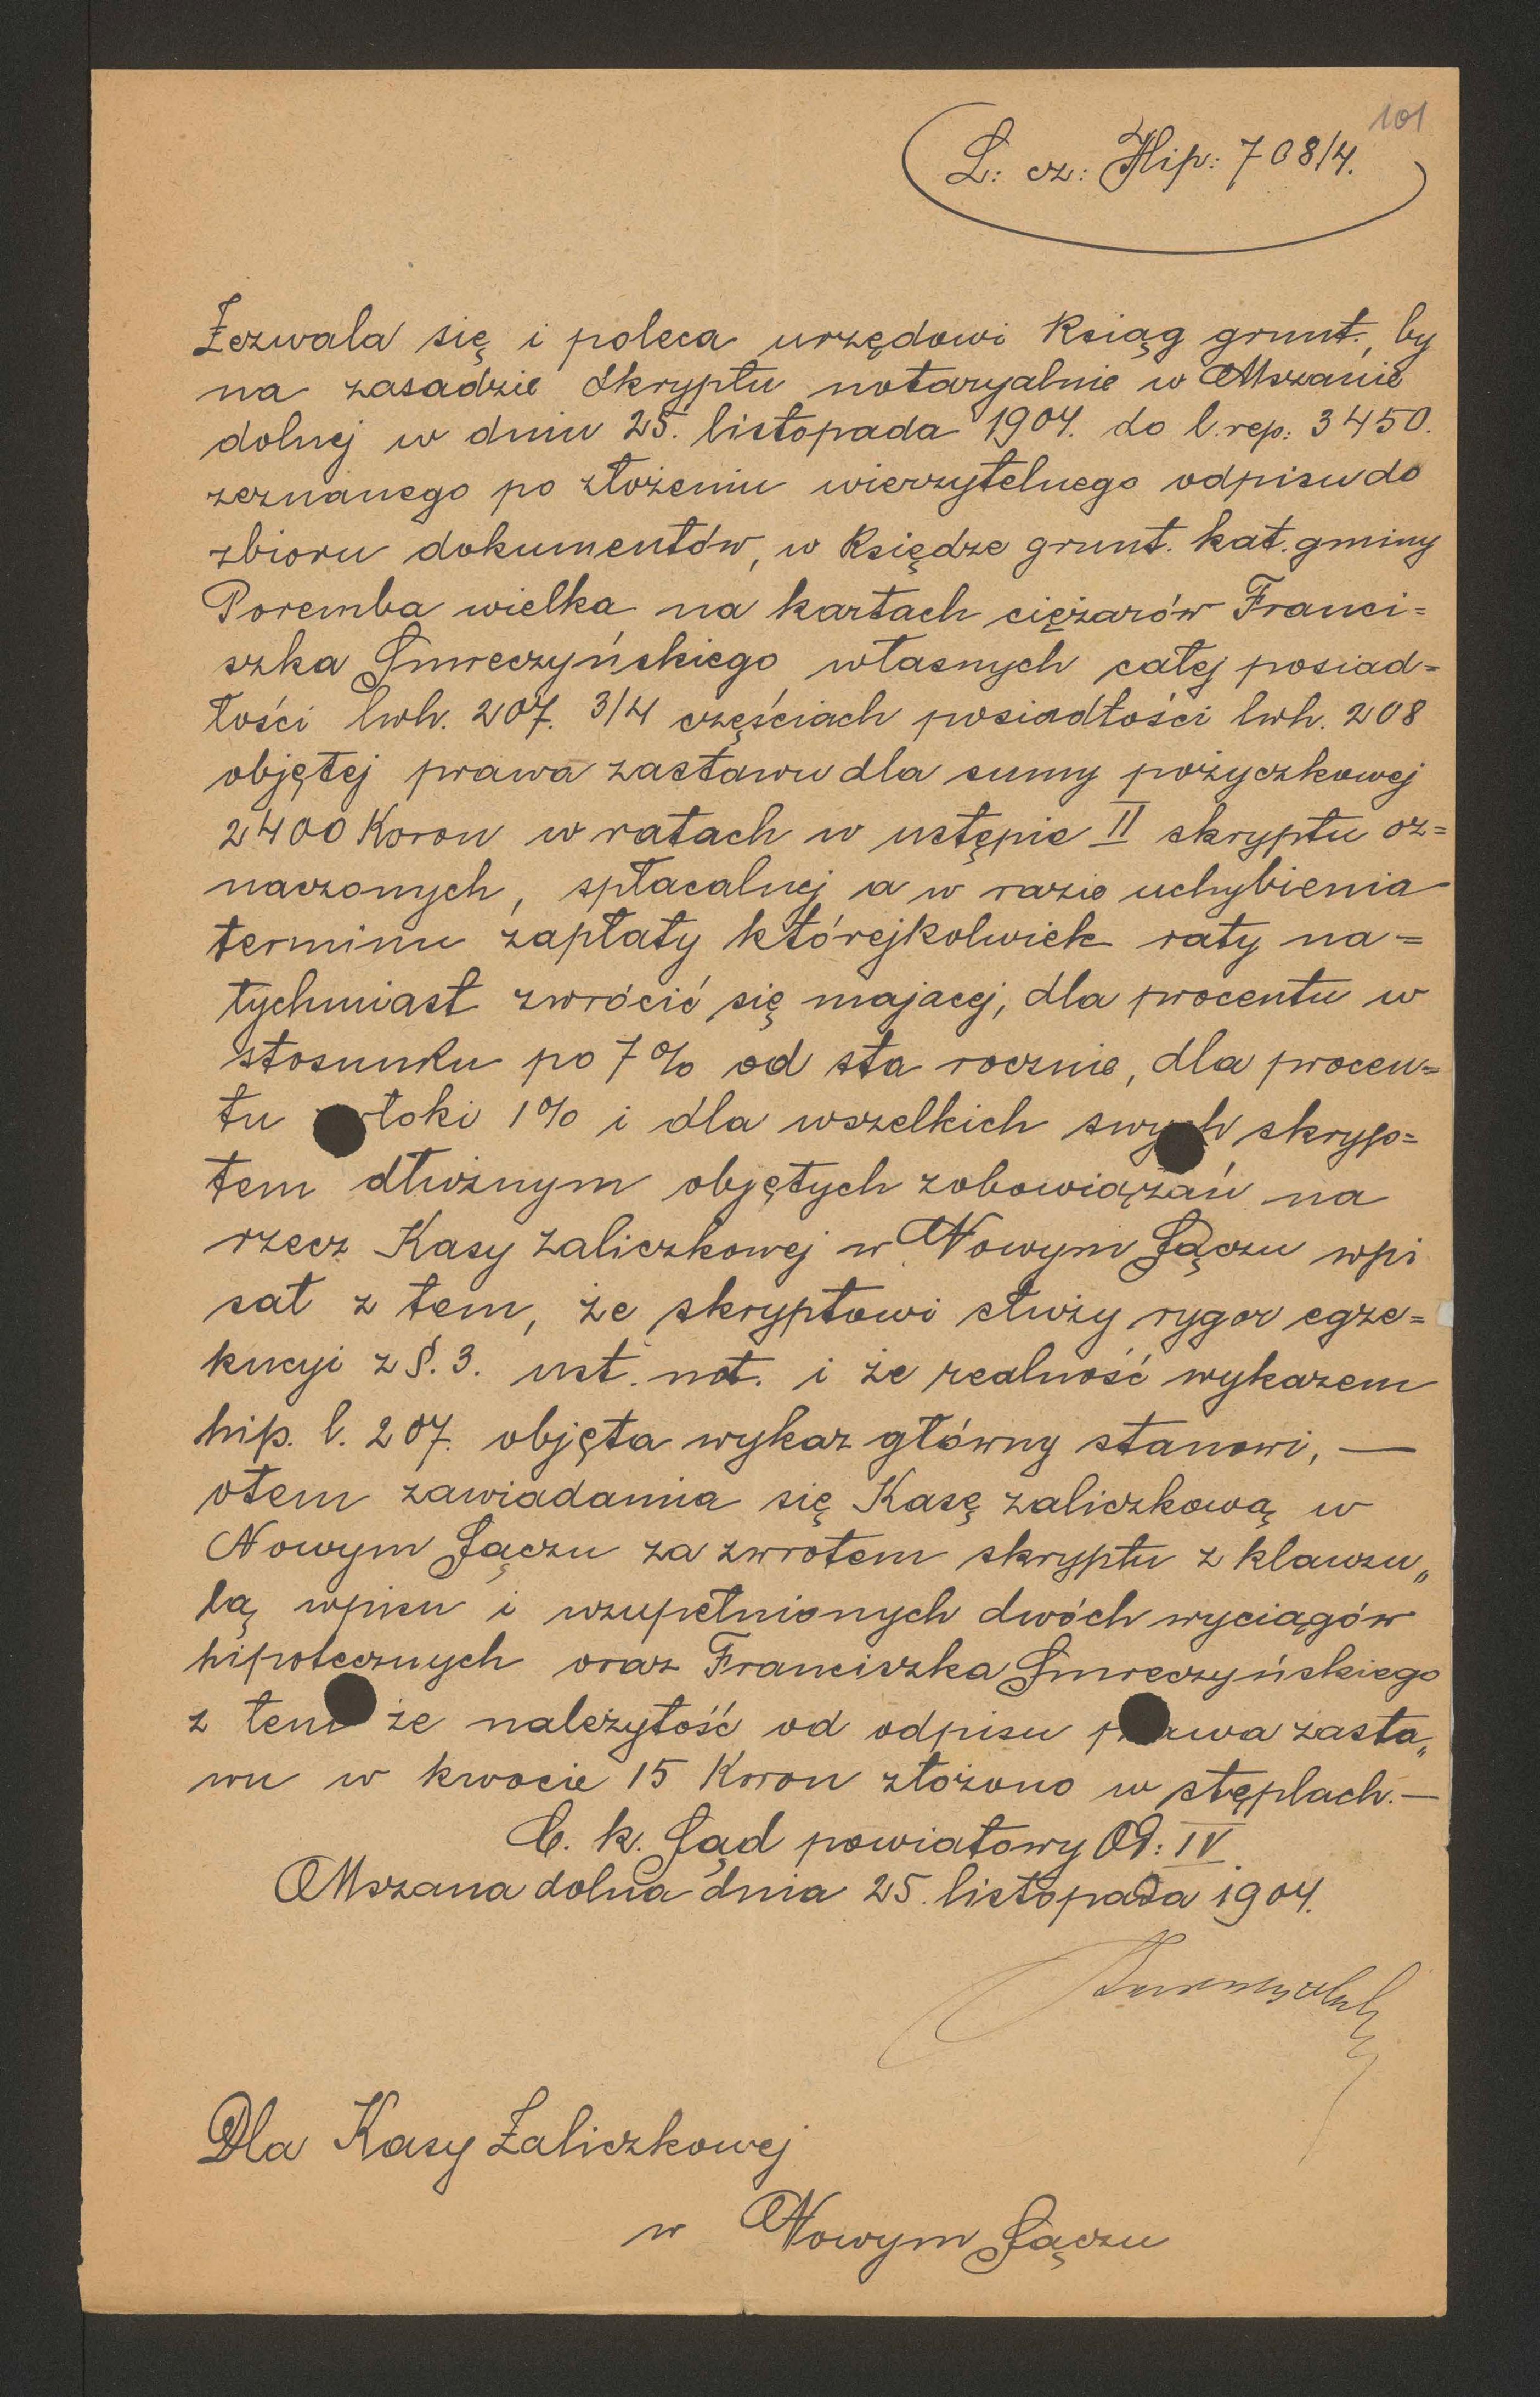 101
L: cz: Hip: 708/4.
Zezwala się i poleca urzędowi Ksiąg grunt., by
na zasadzie skryptu notaryalnie w Mszanie
dolnej w dniu 25. listopada 1904. do l. rep: 3450.
zeznanego po złożeniu wierzytelnego odpisu do
zbioru dokumentów, w Księdze grunt. kat. gminy
Poremba wielka na kartach ciężarów Franci=
szka Smreczyńskiego własnych całej posiad=
łości lwh. 207. 3/4 częściach posiadłości lwh. 208
objętej prawa zastawu dla sumy pożyczkowej
2400 Koron w ratach w ustępie II skryptu oz=
naczonych, spłacalnej a w razie uchybienia
terminu zapłaty którejkolwiek raty na=
tychmiast zwrócić się majacej, dla procentu w
stosunku po 7% od sta rocznie, dla procen=
tu łoki 1% i dla wszelkich swych skryp=
tem dłużnym objętych zobowiązań na
rzecz Kasy zaliczkowej w Nowym Sączu wpi
sał z tem, że skryptowi służy rygor egze=
kucyi z §. 3. ust. not. i że realność wykazem
hip. l. 207. objęta wykaz główny stanowi, —
otem zawiadamia się Kasę zaliczkową w
Nowym Sączu za zwrotem skryptu z klauzu„
lą wpisu i uzupełnionych dwóch wyciągów
hipotecznych oraz Franciszka Smreczyńskiego
z tem że należytość od odpisu prawa zasta„
wu w kwocie 15 Koron złożono w stęplach. —
C. k. Sąd powiatowy Od: IV.
Mszana dolna dnia 25. listopada 1904.
Dla Kasy Zaliczkowej
w Nowym Sączu